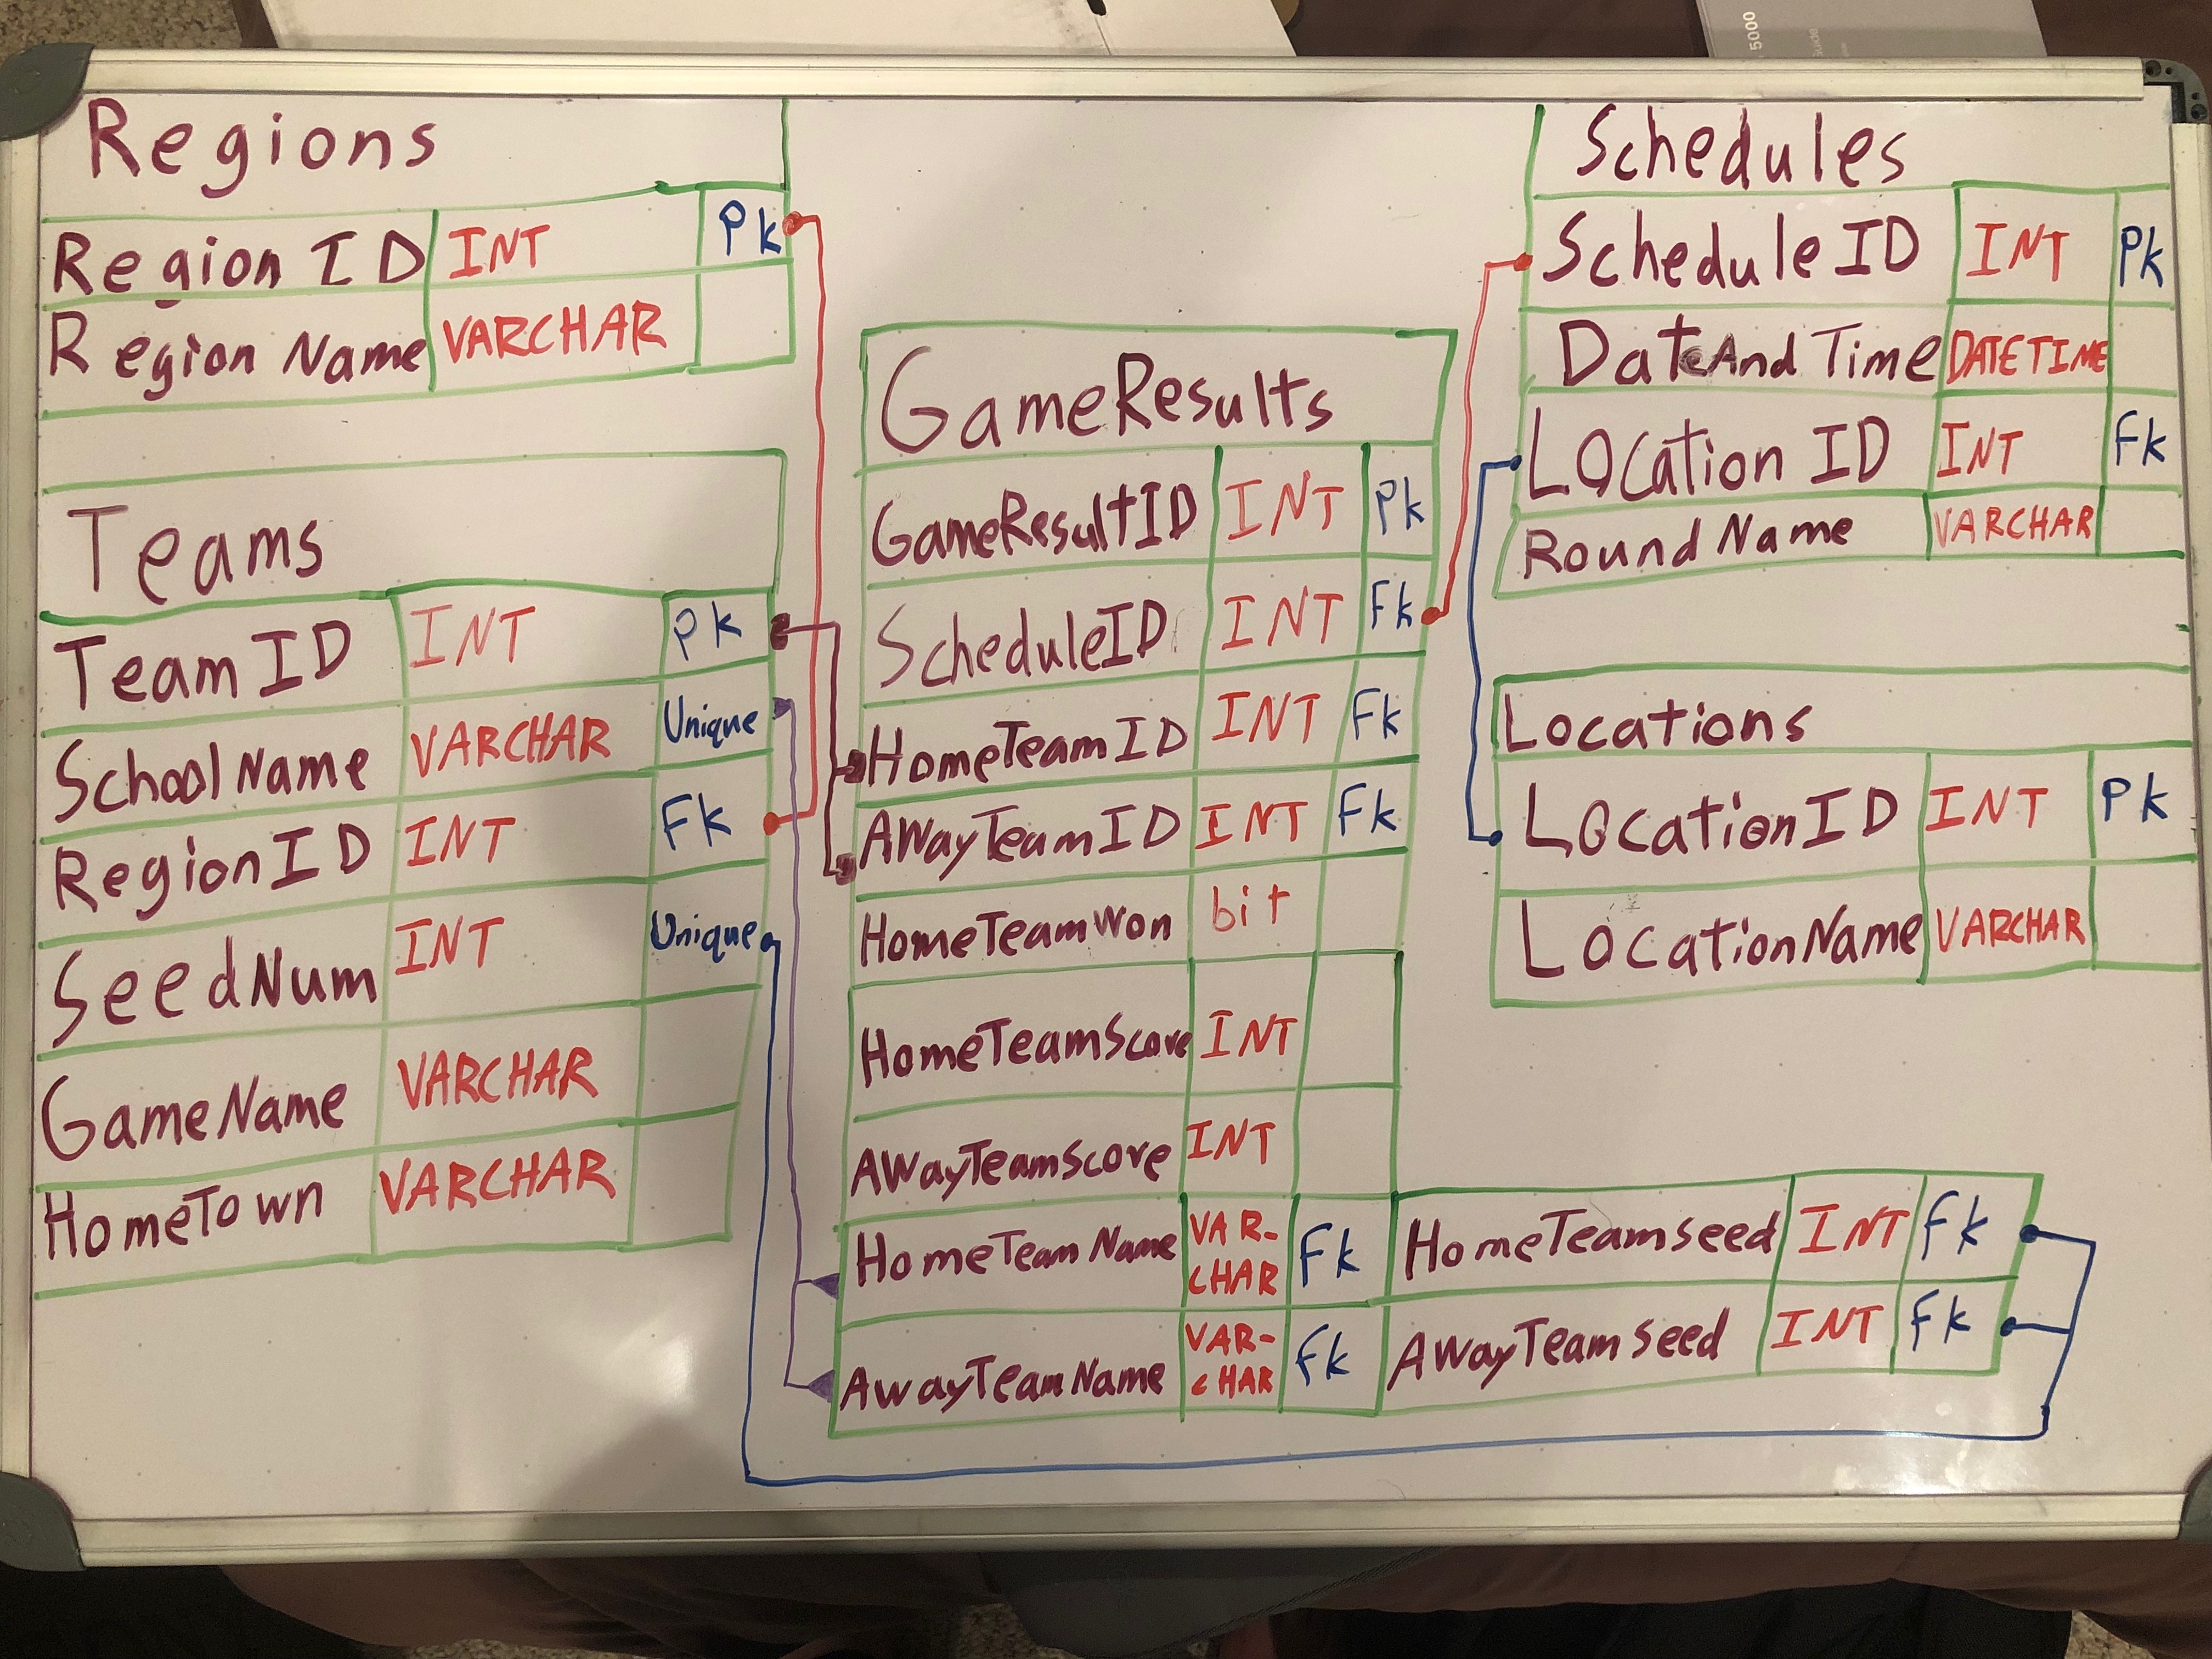 5000
Guide
Regions
Region ID INT Pk
Region Name VARCHAR
Teams
Team ID INT Pk
School Name VARCHAR Unique
Region ID INT Fk
SeedNum INT Unique
GameName VARCHAR
HomeTown VARCHAR
GameResults
GameResultID INT Pk
ScheduleID INT Fk
HomeTeamID INT Fk
AwayTeamID INT Fk
HomeTeamWon bit
HomeTeamScore INT
AwayTeamScore INT
HomeTeamName VAR-
CHAR Fk
HomeTeamSeed INT Fk
AwayTeamName VAR-
CHAR Fk
AwayTeamSeed INT Fk
Schedules
ScheduleID INT Pk
DateAndTime DATETIME
Location ID INT Fk
Round Name VARCHAR
Locations
LocationID INT Pk
LocationName VARCHAR